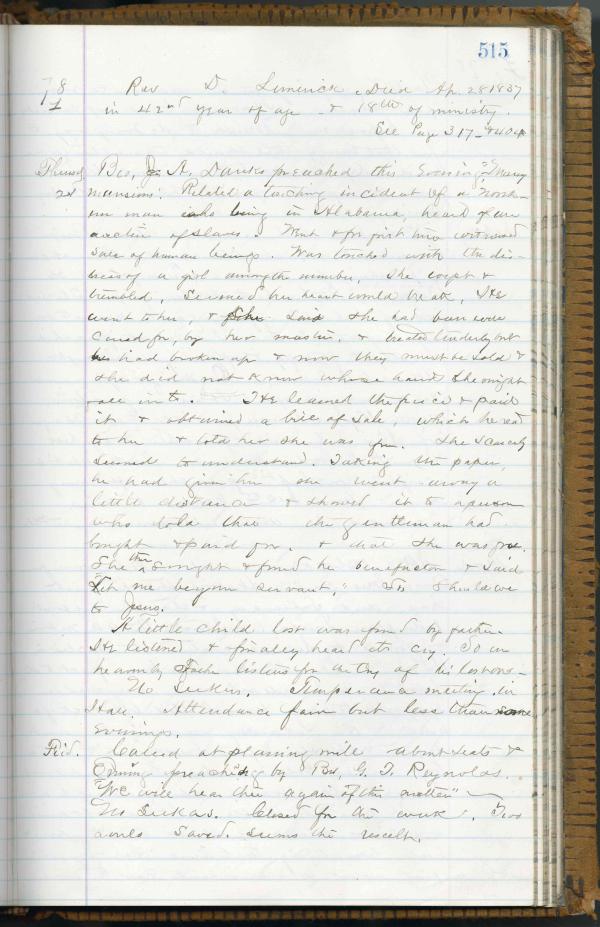 515
78
1
Rev D. Limerick Died Ap. 28 1837
in 42nd year of age & 18th of ministry.
See Page 317 & 404
Thursd Bro, J. A. Danks preached this Evening "Many
21 mansions". Related a touching incident of a North-
ern man who being in Alabama, heard of an
auction of slaves. Went & for first time witnessed
sale of human beings. Was touched with the dis-
tress of a girl among the number, She wept &
trembled, seemed her heart would break, He
went to her, & she said she had been well
cared for, by her master, & treated tenderly but
he had broken up & now they must be sold &
she did not know whose hands she might
fall into. He learned the price & paid
it & obtained a bill of sale, which he read
to her & told her she was free. She scarcely
seemed to understand. Taking the paper,
he had given her she went away a
little distance & showed it to a person
who told that the gentleman had
bought & paid for, & that she was free.
She then sought & found her benefactor & said
"Let me be your servant," So should we
to Jesus.
A little child lost was found by father
He listened & finally heard its cry. So our
heavenly Father listens for the cry of his lost ons -
No Seekers. Temperance meeting in
Hall. Attendance fair but less than some
evenings.
Frid. Called at planing mill about seats &
Evening preaching by Bro, G. T. Reynolds.
"We will hear thee again of this matter"
No Seekers. Closed for the week. Two
souls saved. seems the result.